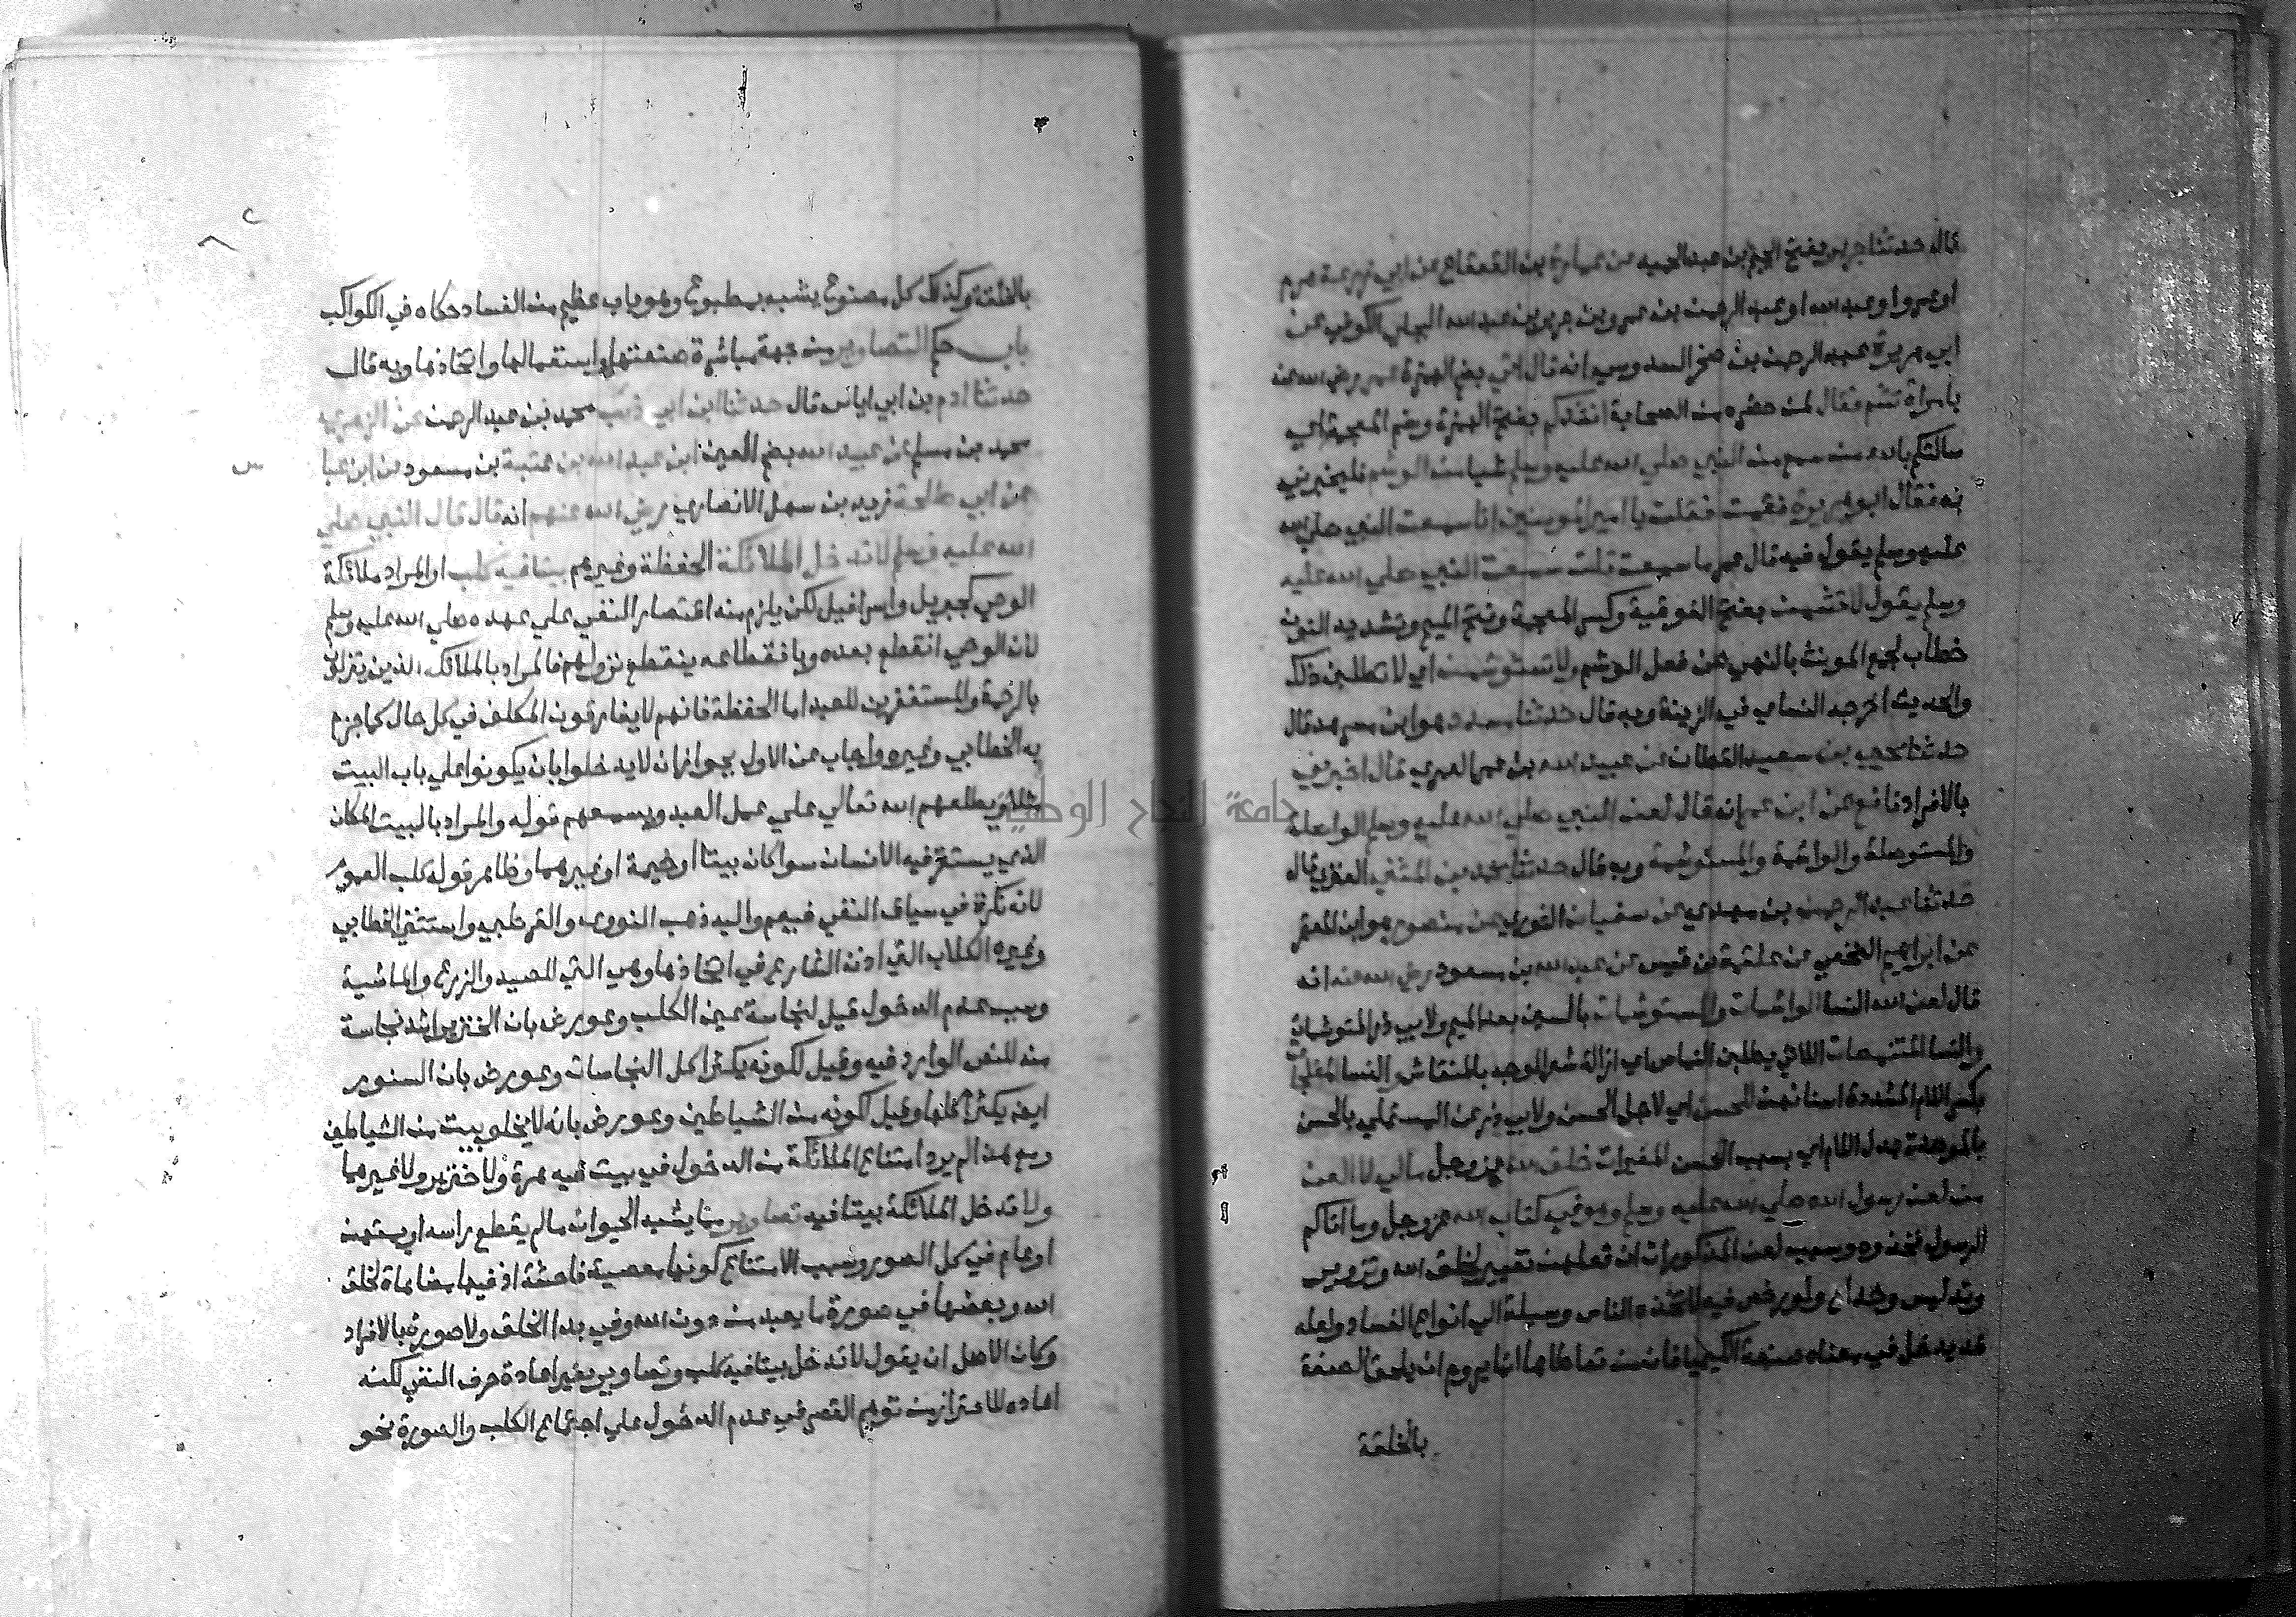 قال حدثنا جرير بفتح الجيم بن عبد الحميد عن عمارة بن القعقاع عن ابي زرعة هرم
او عمرو او عبد الله او عبد الرحمن بن عمرو بن جرير بن عبد الله البجلي الكوفي عن
ابي هريرة عبد الرحمن بن صخر الدوسي انه قال اتي بضم الهمزة عمر رضي الله عنه
بامراة تشم فقال لمن حضره من الصحابة انشدكم بفتح الهمزة وضم المعجمة اي
سالتكم بالله من سمع من النبي صلي الله عليه وسلم شيا من الوشم فليخبرني
به فقال ابو هريرة فقمت فقلت يا امير المومنين انا سمعت النبي صلي الله
عليه وسلم يقول فيه قال عمر ما سمعت قلت سمعت النبي صلي الله عليه
وسلم يقول لا تشمن بفتح الفوقية وكسر المعجمة وفتح الميم وتشديد النون
خطاب لجمع المونث بالنهي عن فعل الوشم ولا تستوشمن اي لا تطلبن ذلك
والحديث اخرجه النساي في الزينة وبه قال حدثنا مسدد هو ابن مسرهد قال
حدثنا يحيي بن سعيد القطان عن عبيد الله بن عمر العمري قال اخبرني
بالافراد نافع عن ابن عمر انه قال لعن النبي صلي الله عليه وسلم الواصلة
والمستوصلة والواشمة والمستوشمة وبه قال حدثنا محمد بن المثني العنزي قال
حدثنا عبد الرحمن بن مهدي عن سفيان الثوري عن منصور هو ابن المعتمر
عن ابراهيم النخعي عن علقمة بن قيس عن عبد الله بن مسعود رضي الله عنه انه
قال لعن الله النسا الواشمات والمستوشمات بالسين بعد الميم ولابي ذر المتوشمات
والنسا المتنمصات اللاتي يطلبن النماص اي ازالة شعر الوجه بالمنقاش والنسا المفلجات
بكسر اللام المشددة اسنانهن للحسن اي لاجل الحسن ولابي ذر عن المستملي بالحسن
بالموحدة بدل اللام اي بسبب الحسن المغيرات خلق الله عز وجل مالي لا العن
من لعن رسول الله صلي الله عليه وسلم وهو في كتاب الله عز وجل وما اتاكم
الرسول فخذوه وسبب لعن المذكورات ان فعلهن تغيير لخلق الله وتزوير
وتدليس وخداع ولو رخص فيه لاتخذه الناس وسيلة الي انواع الفساد ولعله
قد يدخل في معناه صنعة الكيميا فان من تعاطاها انما يروم ان يلحق الصنعة
بالخلقة
بالخلقة وكذلك كل مصنوع يشبه بمطبوع وهو باب عظيم من الفساد حكاه في الكواكب
باب حكم التصاوير من جهة مباشرة صنعتها واستعمالها واتخاذها وبه قال
حدثنا ادم بن ابي اياس قال حدثنا ابن ابي ذئب محمد بن عبد الرحمن عن الزهري
محمد بن مسلم عن عبيد الله بضم العين ابن عبد الله بن عتبة بن مسعود عن ابن عبا
س
عن ابي طلحة زيد بن سهل الانصاري رضي الله عنهم انه قال قال النبي صلي
الله عليه وسلم لا تدخل الملائكة الحفظة وغيرهم بيتا فيه كلب او المراد ملائكة
الوحي كجبريل واسرافيل لكن يلزم منه اقتصار النفي علي عهده صلي الله عليه وسلم
لان الوحي انقطع بعده وبانقطاعه ينقطع نزولهم فالمراد بالملائكة الذين ينزلون
بالرحمة والمستغفرين للعبد اما الحفظة فانهم لا يفارقون المكلف في كل حال كما جزم
به الخطابي وغيره واجاب عن الاول بجواز ان لا يدخلوا بان يكونوا علي باب البيت
مثلا ويطلعهم الله تعالي علي عمل العبد ويسمعهم قوله والمراد بالبيت المكان
الذي يستقر فيه الانسان سوا كان بيتا او خيمة او غيرهما وظاهر قوله كلب العموم
لانه نكرة في سياق النفي فيعم واليه ذهب النووي والقرطبي واستثني الخطابي
وغيره الكلاب التي اذن الشارع في اتخاذها وهي التي للصيد والزرع والماشية
وسبب عدم الدخول قيل لنجاسة عين الكلب وعورض بان الخنزير اشد نجاسة
منه للنص الوارد فيه وقيل لكونه يكثر اكل النجاسات وعورض بان السنور
ايضا يكثر اكلها وقيل لكونه من الشياطين وعورض بانه لا يخلو بيت من الشياطين
ومع هذا لم يرد امتناع الملائكة من الدخول في بيت فيه هرة ولا خنزير ولا غيرهما
ولا تدخل الملائكة بيتا فيه تصاوير مما يشبه الحيوان ما لم يقطع راسه او يمتهن
او عام في كل الصور وسبب الامتناع كونها معصية فاحشة اذ فيها مضاهاة لخلق
الله وبعضها في صورة ما يعبد من دون الله وفي بدا الخلق ولا صورة بالافراد
وكان الاصل ان يقول لا تدخل بيتا فيه كلب وتصاوير بغير اعادة حرف النفي لكنه
اعاده للاحتراز من توهم القصر في عدم الدخول علي اجتماع الكلب والصورة نحو
جامعة النجاح الوطنية